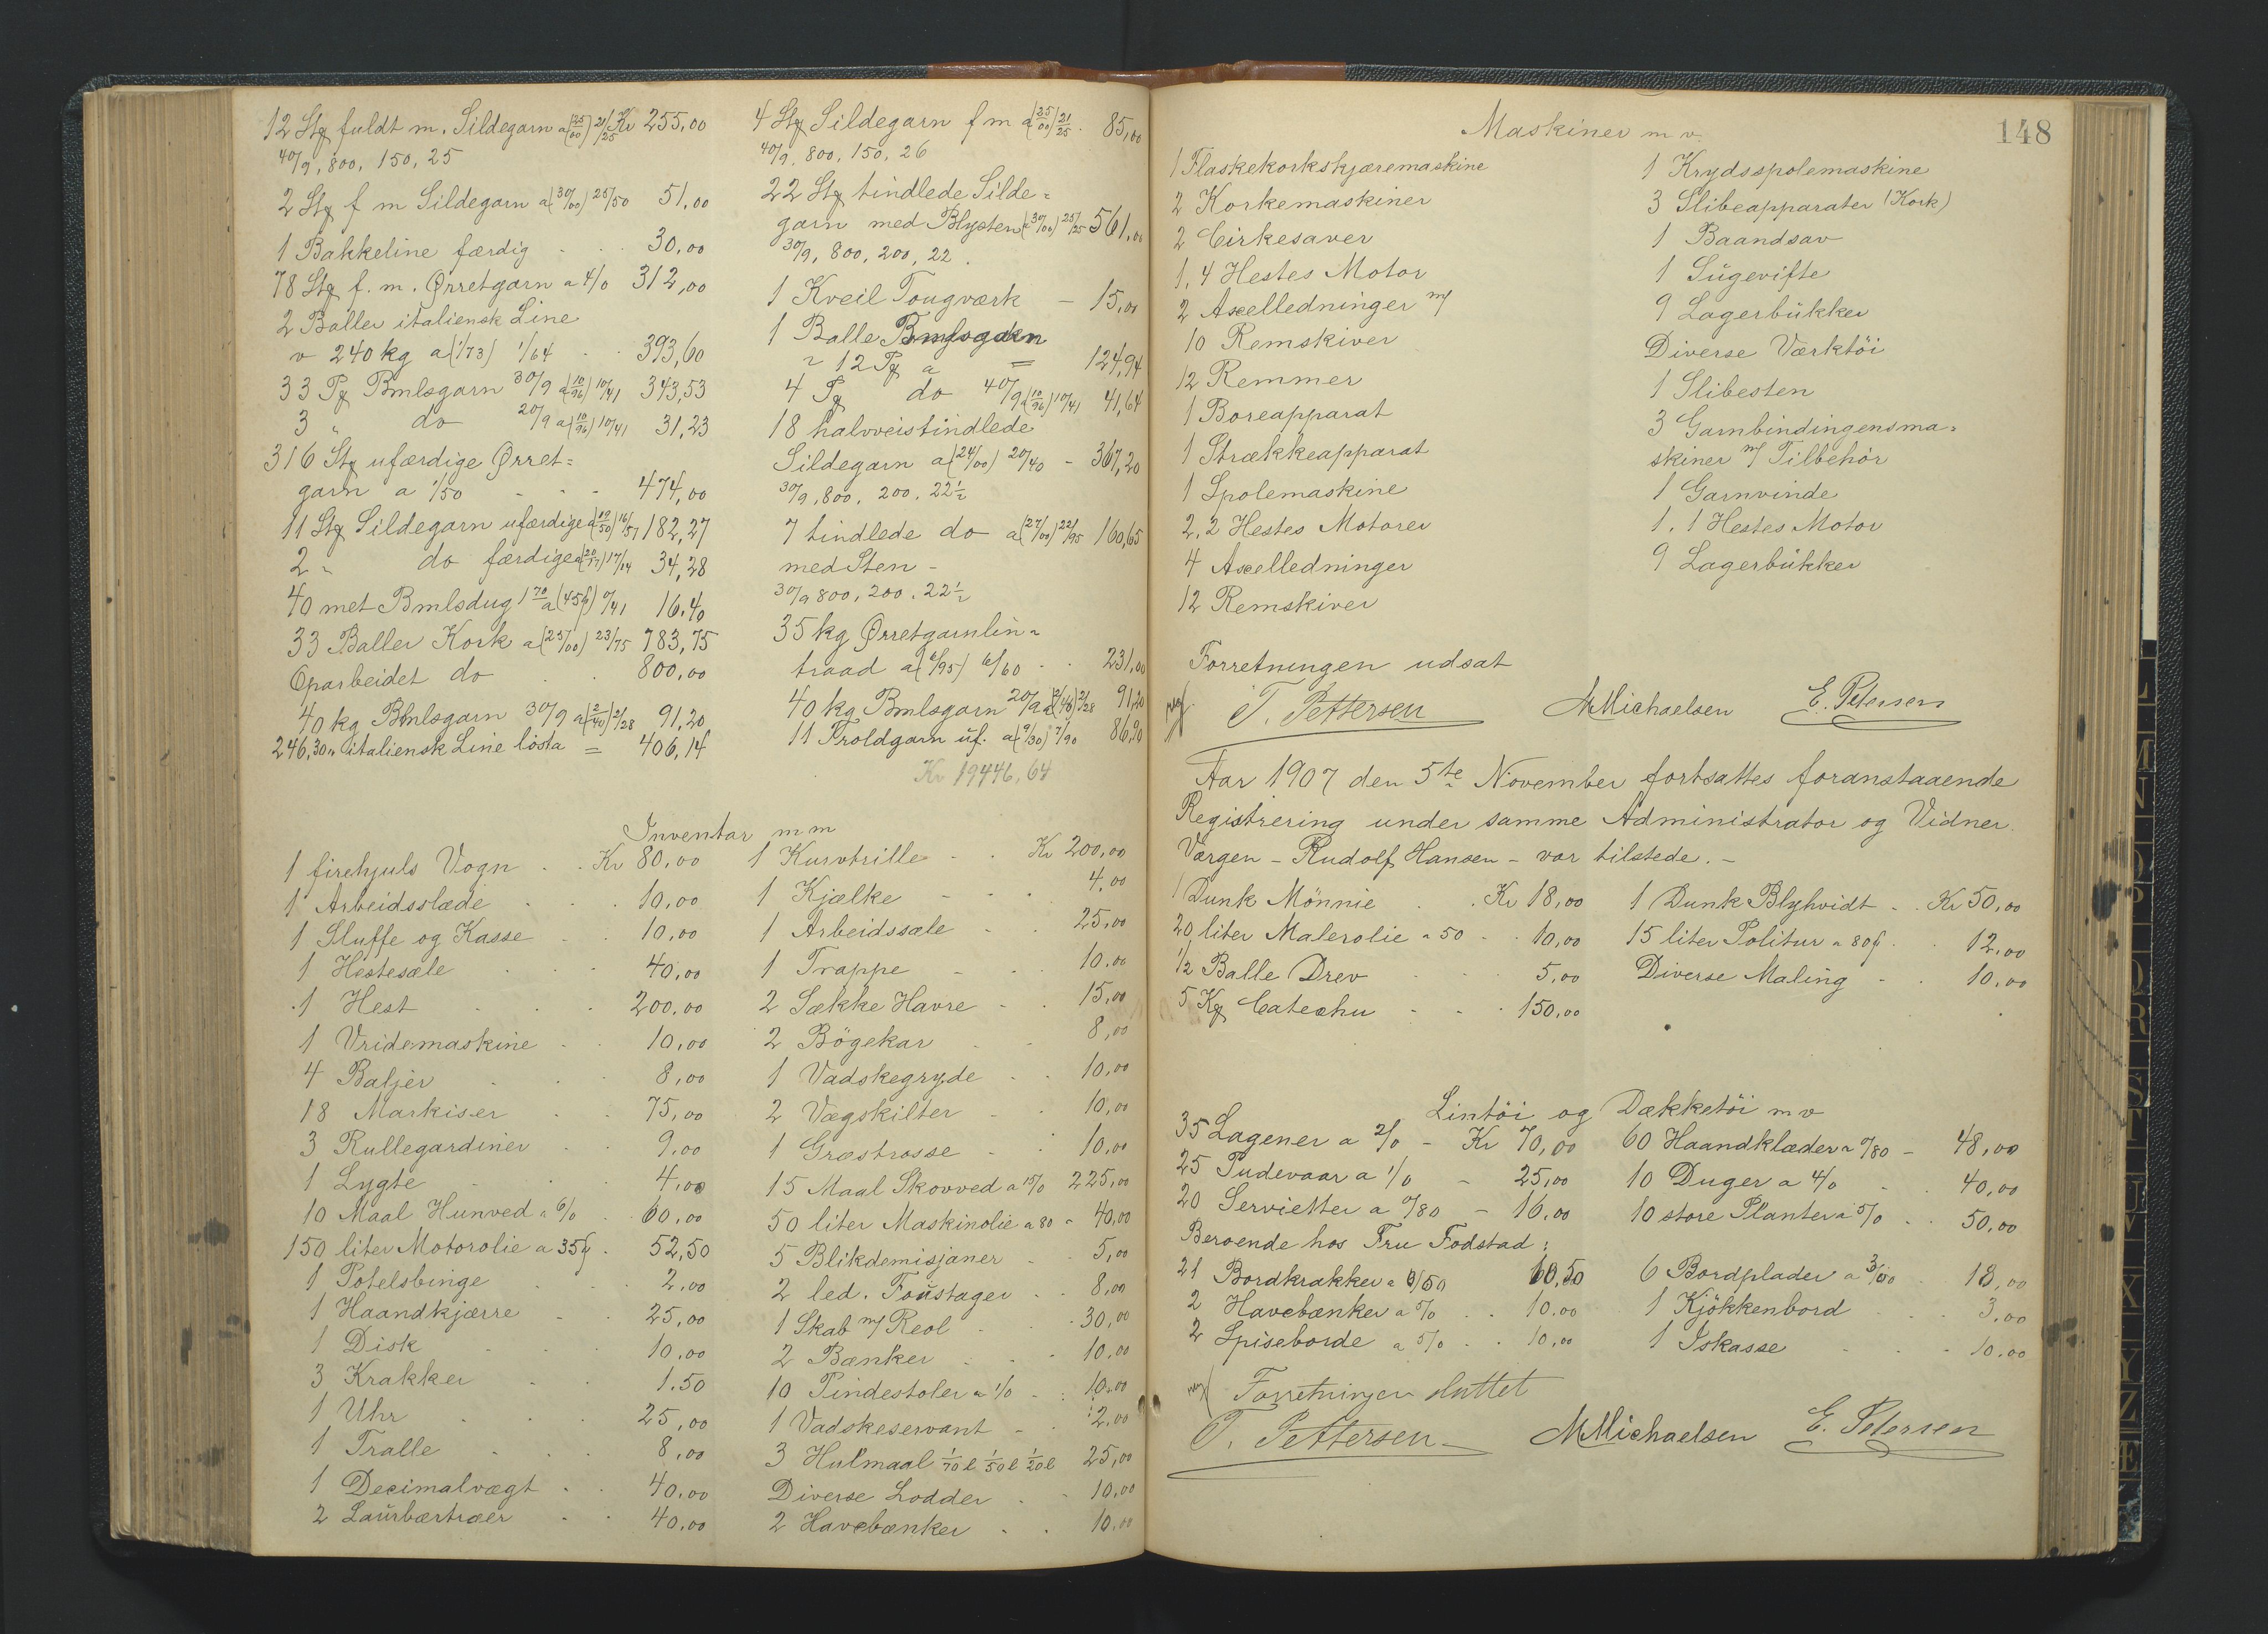 12 Stg fuldt m. Sildegarn a (25/00) 21/25 Kr 255,00
40/9, 800, 150, 25
2 Stg f m Sildegarn a (30/00) 25/50 51,00
1 Bakkeline færdig 30,00
78 Stg f. m. Ørretgarn a 4/0 312,00
2 Baller italiensk Line
v 240 kg a (1/73) 1/64 393,60
33 Pg Bmlsgarn 30/9 a (10/96) 10/41 343,53
3 " do 20/9 a (10/96) 10/41 31,23
316 Stg ufærdige Ørret=
garn a 1/50 474,00
11 Stg Sildegarn ufærdige a (19/50) 16/57 182,27
2 " do færdige a 17/14 34,28
40 met Bmlsdug 1 70 a (45 ) 0/41 16.40
33 Baller Kork a (25/00) 23/75 783,75
Oparbeidet do 800,00
40 kg Bmlsgarn 30/9 a (2/40) 2/28 91,20
246,30 " italiensk Line løsta = 406,14
4 Stg Sildegarn f m a (25/00) 21/25 85,00
40/9, 800, 150, 26
22 Stg tindlede Silde=
garn med Blysten (30/00) 25/25 561,00
30/9, 800, 200, 22.
1 Kveil Tougværk - 15,00
1 Balle Bmlsgarn
" 12 Pg a = 124,94
4 Pg do 40/9 a (10/96) 10/41 41,64
18 halvveistindlede
Sildegarn a (24/00) 20/40 - 367,20
30/9, 800, 200, 22½
7 tindlede do a (27/00) 22/95 160,65
med Sten -
30/9 800, 200, 22½
35 kg Ørretgarnlin=
traad a (6/95) 6/60 231,00
40 kg Bmlsgarn 20/9 a (2/40) 2/28 91,20
11 Troldgarn uf. a (9/30) 7/90 86,90
Kr 19446,64
Inventar m m
1 firehjuls Vogn Kr 80,00
1 Arbeidsslæde 10,00
1 Sluffe og Kasse 10,00
1 Hestesæle 40,00
1 Hest 200,00
1 Vridemaskine 10,00
4 Baljer 8,00
18 Markiser 75,00
3 Rullegardiner 9,00
1 Lygte 4,00
10 Maal Hunved a 6/0 60,00
150 liter Motorolie a 35 52,50
1 Potelsbinge 2,00
1 Haandkjærre 25,00
1 Disk 10,00
3 Krakker 1.50
1 Uhr 25,00
1 Tralle 8,00
1 Decimalvægt 40,00
2 Laurbærtræer 40,00
1 Kurvtrille Kr 200,00
1 Kjælke 4,00
1 Arbeidssæle 25,00
1 Trappe 10,00
2 Sække Havre 15,00
2 Bögekar 8,00
1 Vadskegryde 10,00
2 Vægskilter 10,00
1 Græstrosse 10,00
15 Maal Skovved a 15/0 225,00
50 liter Maskinolie a 80 40,00
5 Blikdemisjaner 5,00
2 led. Foustager 8,00
1 Skab m/ Reol 30,00
2 Bænker 10,00
10 Pindestoler a 1/0 10,00
1 Vadskeservant 2,00
3 Hulmaal 1/10 l 1/50 l 1/20 l 25,00
Diverse Lodder 10,00
2 Havebænker 10,00
148
Maskiner m v.
1 Flaskekorkskjæremaskine
2 Korkemaskiner
2 Cirkesaver
1, 4 Hestes Motor
2 Axelledninger m/
10 Remskiver
12 Remmer
1 Boreapparat
1 Strækkeapparat
1 Spolemaskine
2, 2 Hestes Motorer
4 Axelledninger
12 Remskiver
1 Krydsspolemaskine
3 Slibeapparater (Kork)
1 Baandsav
1 Sugevifte
9 Lagerbukker
Diverse Værktöi
1 Slibesten
3 Garnbindingensma=
skiner m/ Tilbehör
1 Garnvinde
1. 1 Hestes Motor
9 Lagerbukker
Forretningen udsat
T. Pettersen MMichaelsen E. Petersen
Aar 1907 den 5te November fortsattes foranstaaende
Registrering under samme Administrator og Vidner.
Værgen - Rudolf Hansen - var tilstede. -
1 Dunk Mönnie Kr 18,00
20 liter Malerolie a 50 10,00
1/2 Balle Drev 5,00
5 Kg Catechu 150,00
1 Dunk Blyhvidt Kr 50,00
15 liter Politur a 80 12,00
Diverse Maling 10,00
Lintöi og Dækketöi m v
35 Lagener a 2/0 - Kr 70,00
25 Pudevaar a 1/0 - 25,00
20 Servietter a 0/80 - 16,00
60 Haandklæder a 0/80 - 48,00
10 Duger a 4/0 40,00
10 store Planter a 5/0 50,00
Beroende hos Fru Fodstad:
21 Bordkrakker a 0/50 10,50
2 Havebænker a 5/0 10,00
2 Spiseborde a 5/0 10,00
6 Bordplader a 3/00 18,00
1 Kjökkenbord 3,00
1 Iskasse 10.00
Forretningen sluttet
T. Pettersen MMichaelsen E. Petersen